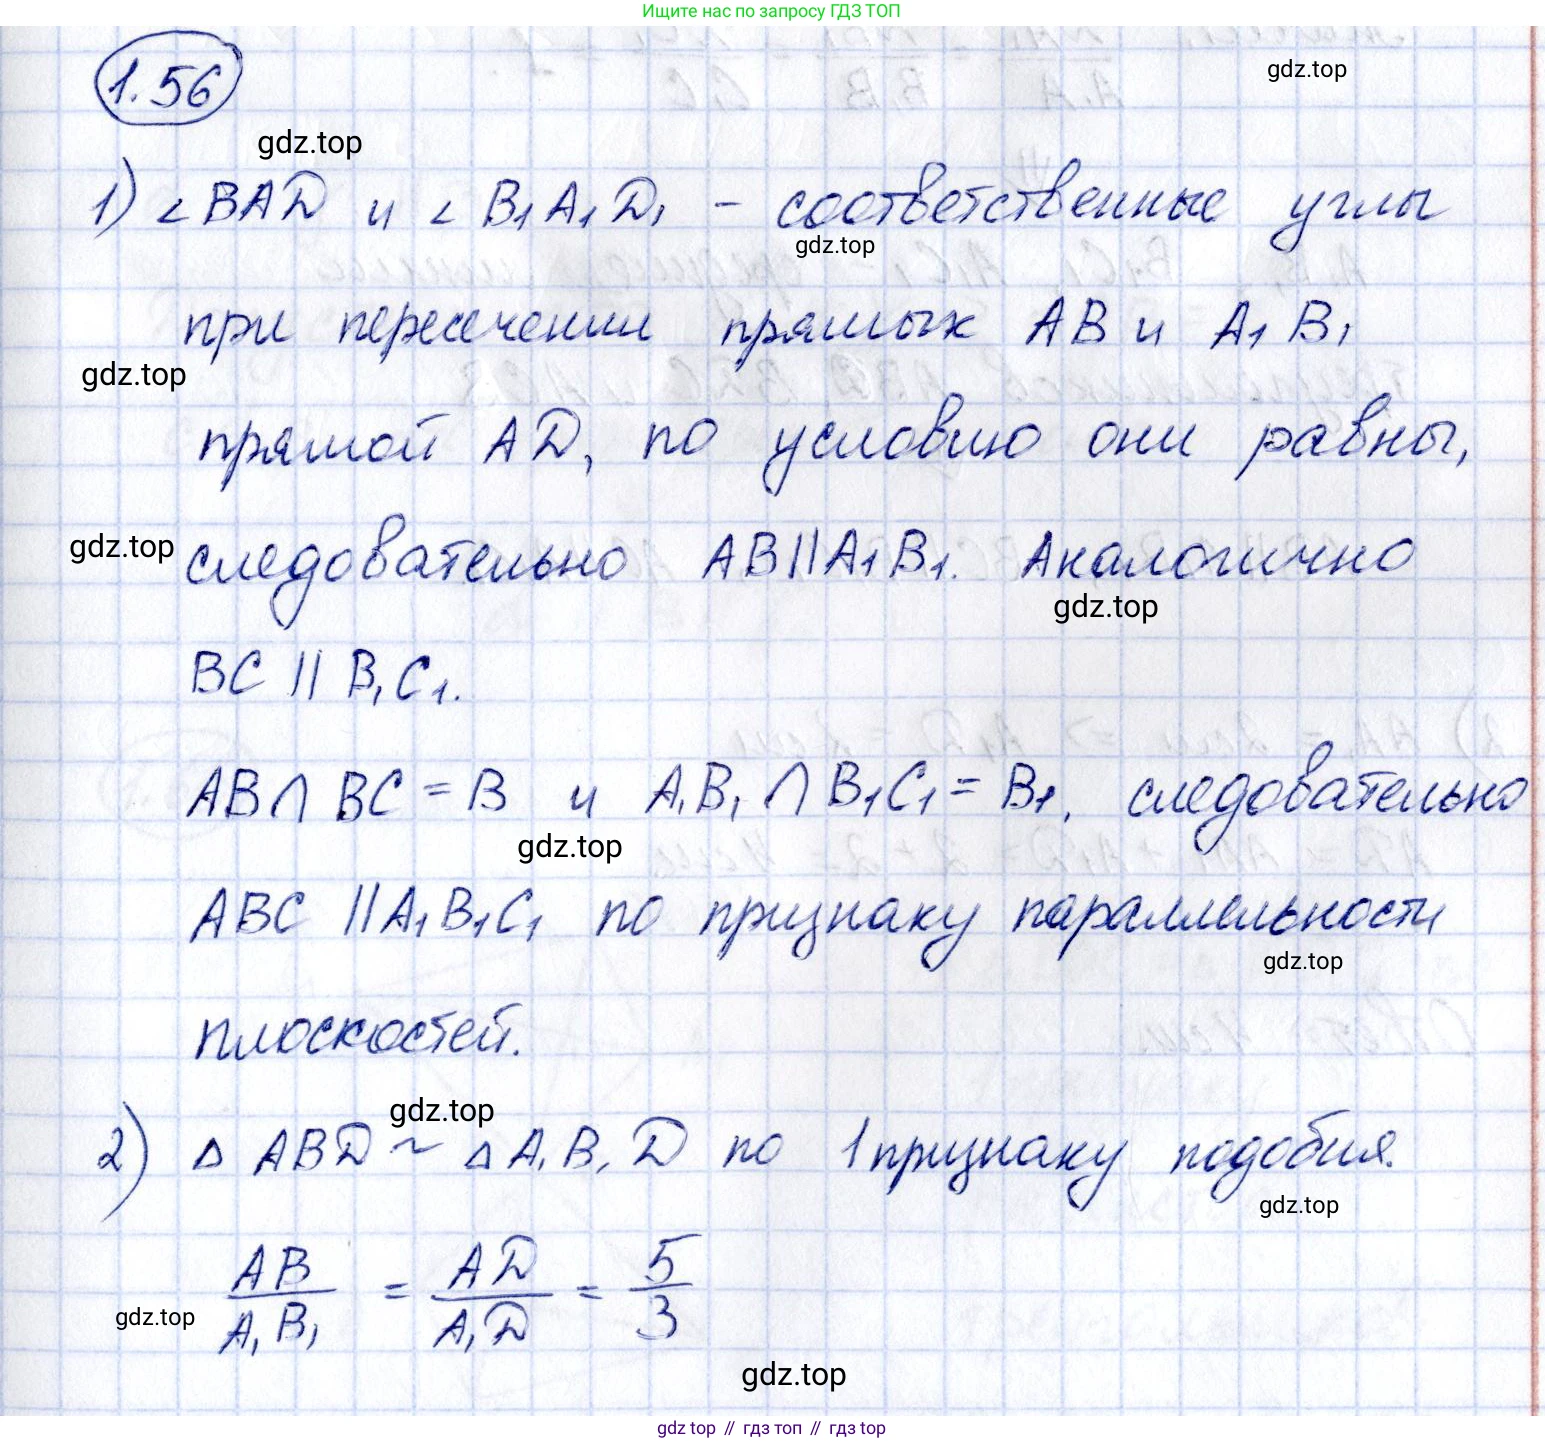 Ищите нас по запросу ГДЗ ТОП
1.56
gdz.top
gdz.top
1) ∠BAD и ∠B₁A₁D₁ – соответственные углы
gdz.top
при пересечении прямых AB и A₁B₁
gdz.top
прямой AD, по условию они равны,
gdz.top
следовательно AB||A₁B₁. Аналогично
gdz.top
BC || B₁C₁.
AB∩BC=B и A₁B₁∩B₁C₁=B₁, следовательно
gdz.top
ABC ||A₁B₁C₁ по признаку параллельности
gdz.top
плоскостей.
gdz.top
2) △ABD ~ △A₁B₁D по 1 признаку подобия.
gdz.top
AB/A₁B₁ = AD/A₁D = 5/3
gdz.top
gdz.top
gdz top // гдз топ // гдз top